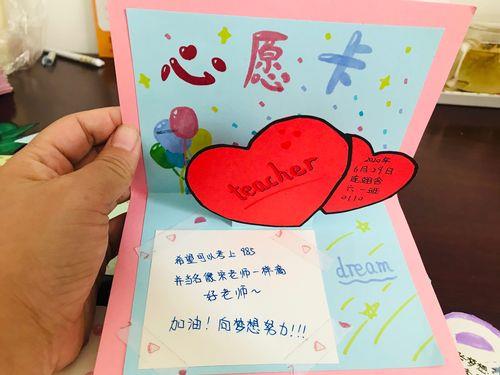 心愿卡
teacher
2020年
6月29号
六一班
0110
希望可以考上985
并当名像宋老师一样离
好老师~
加油！向梦想努力!!!
dream